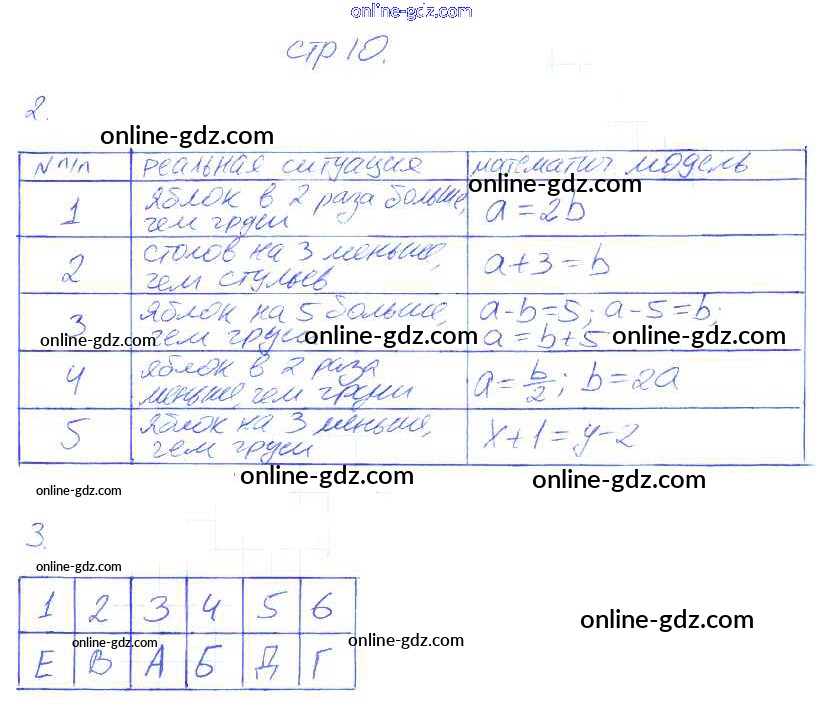 online-gdz.com
стр 10.
2.
online-gdz.com
N п/п реальная ситуация математич модель
online-gdz.com
1 яблок в 2 раза больше, a=2b
чем груш
2 столов на 3 меньше, a+3=b
чем стульев
3 яблок на 5 больше, a-b=5; a-5=b;
чем груш a=b+5
online-gdz.com online-gdz.com online-gdz.com
4 яблок в 2 раза a=b/2; b=2a
меньше, чем груш
5 яблок на 3 меньше, x+1=y-2
чем груш
online-gdz.com online-gdz.com
online-gdz.com
3.
online-gdz.com
1 2 3 4 5 6
online-gdz.com
online-gdz.com online-gdz.com
Е В А Б Д Г